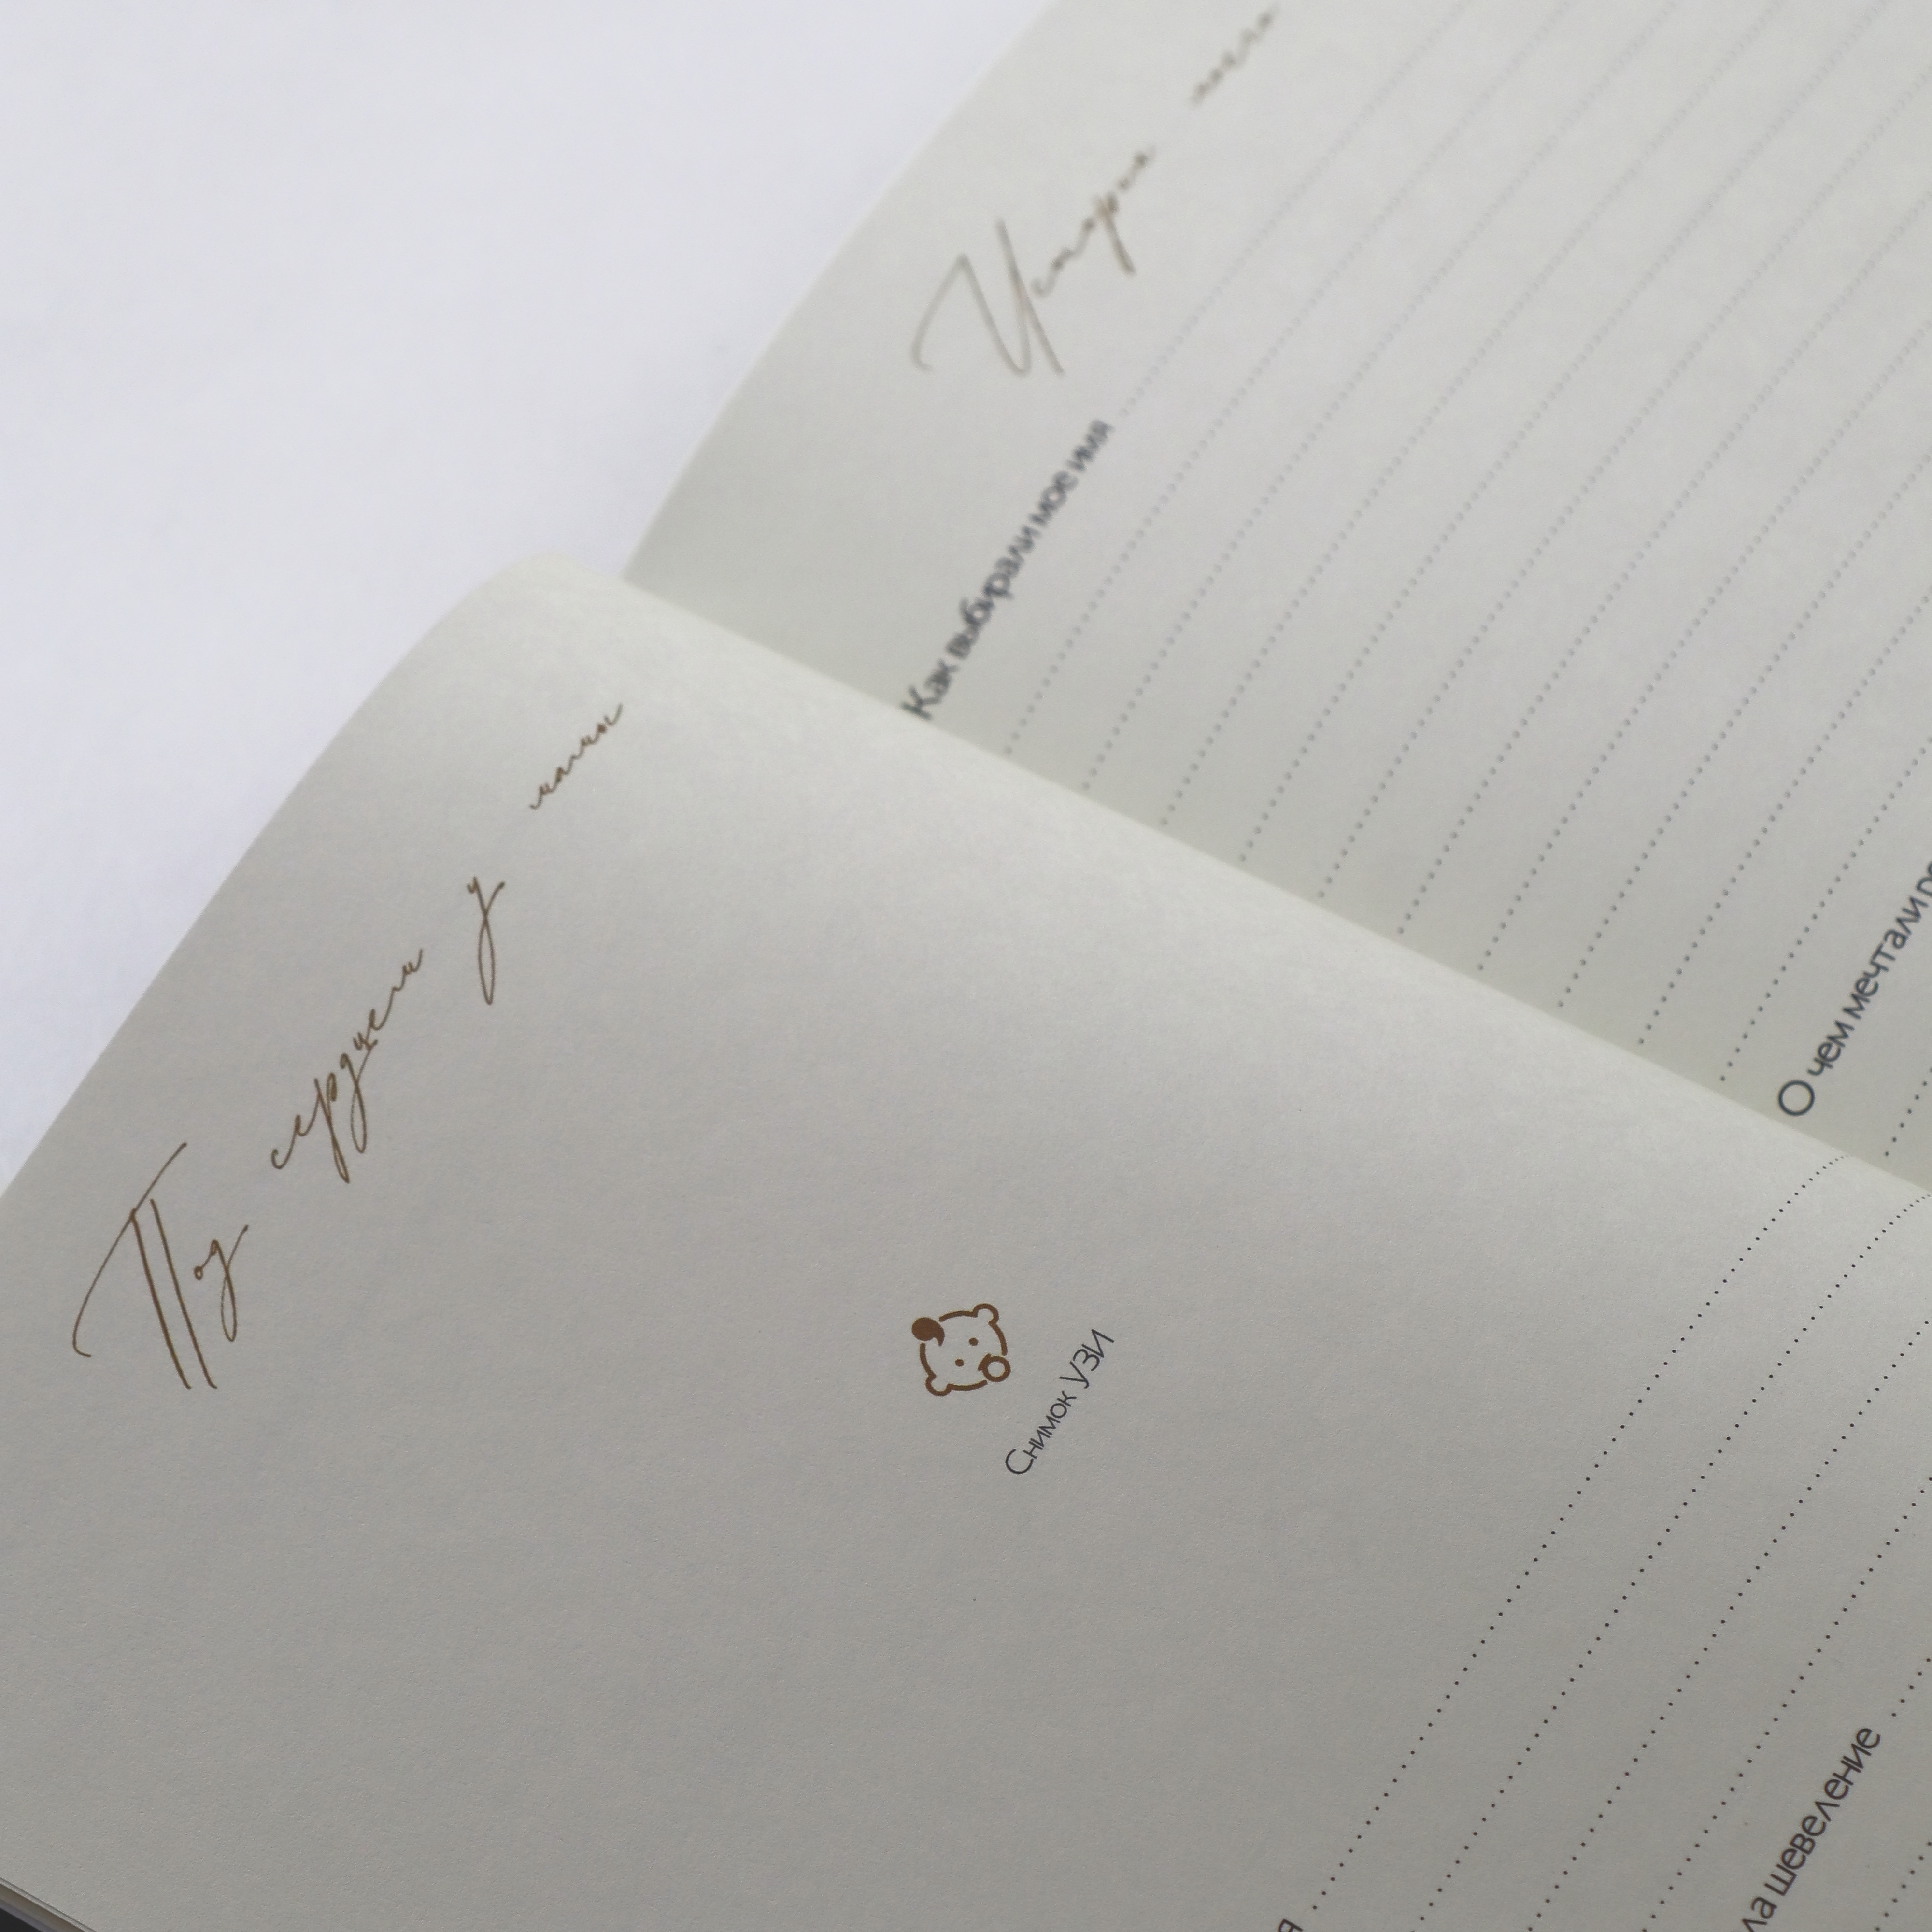 Под сердцем у мамы
Снимок УЗИ
я
ла шевеление
История
Как выбирали мое имя
О чем мечтали ро